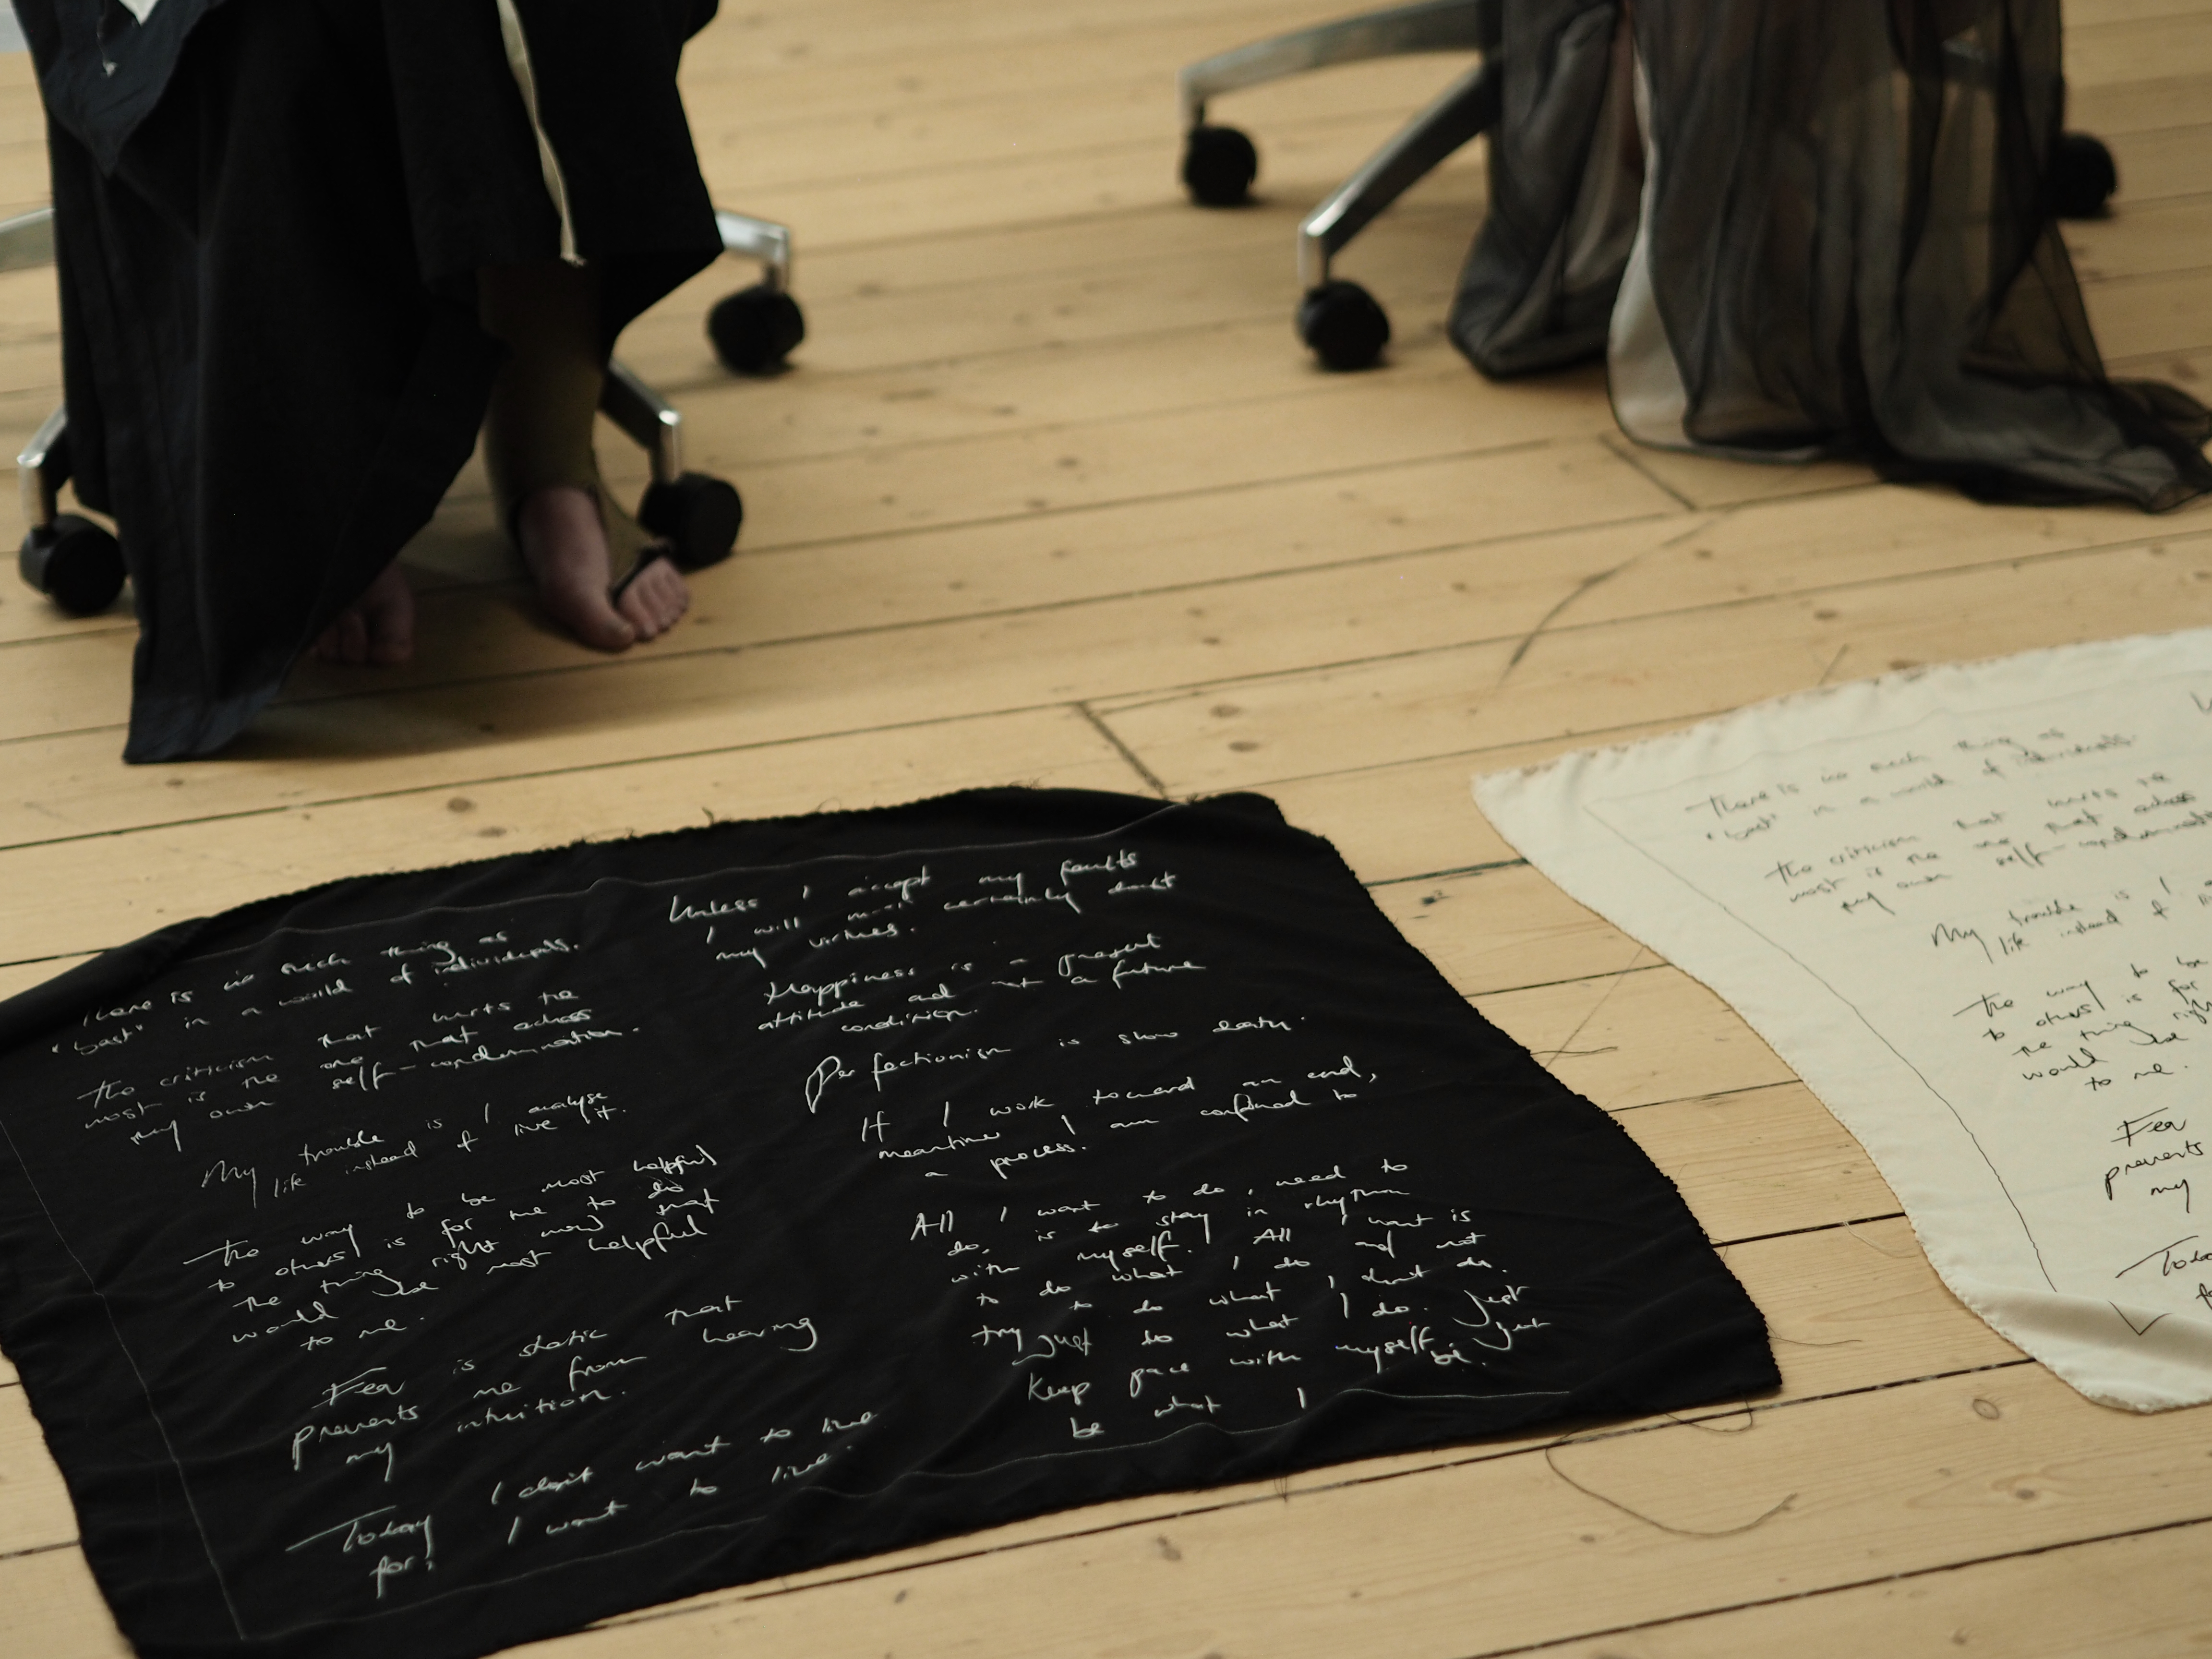 There is no such thing as
"best" in a world of individuals.
The criticism that hurts the
most is the one that echos
my own self-condemnation.
My trouble is I analyse
life instead of live it.
The way to be most helpful
to others is for me to do
the thing right now that
would be most helpful
to me.
Fear is static that
prevents me from hearing
my intuition.
Today I don't want to live
for, I want to live.
Unless I accept my faults
I will most certainly doubt
my virtues.
Happiness is a present
attitude and not a future
condition.
Perfectionism is slow death.
If I work toward an end,
meantime I am confined to
a process.
All I want to do, need to
do, is to stay in rhythm
with myself. All I want is
to do what I do and not
try to do what I don't do.
Just do what I do. Just
keep pace with myself. Just
be what I be.
There is no such thing as
"best" in a world of individuals.
The criticism that hurts the
most is the one that echos
my own self-condemnation
My trouble is I
life instead of
The way to be
to others is for
the thing right
would be
to me.
Fear
prevents
my